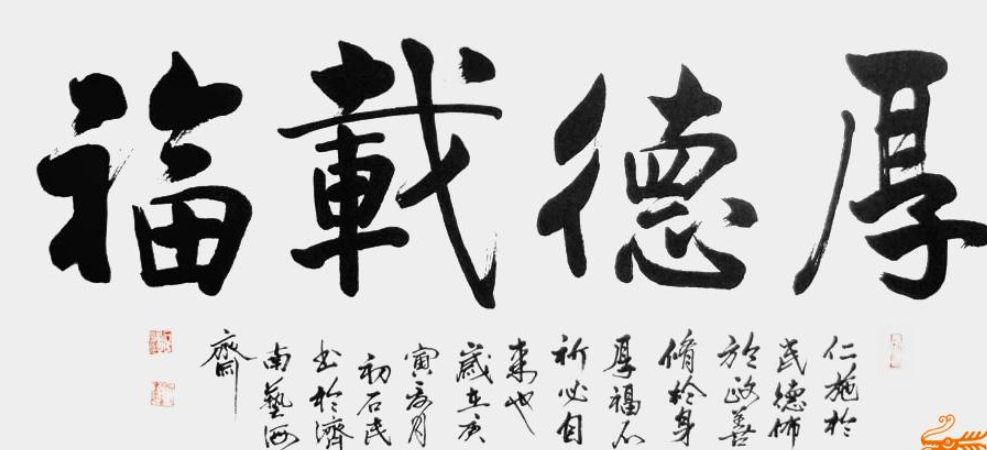 厚德載福
仁施於
民德佈
於政善
脩於身
厚福不
祈必自
來也
歲在庚
寅月
初石民
書於濟
南藝海
齋